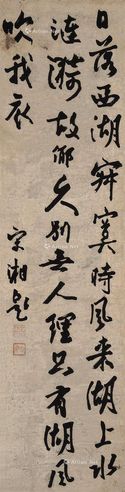 日落西湖寂寞時風來湖上水
漣漪故鄉久別無人理只有湖風
吹我衣
宋湘題